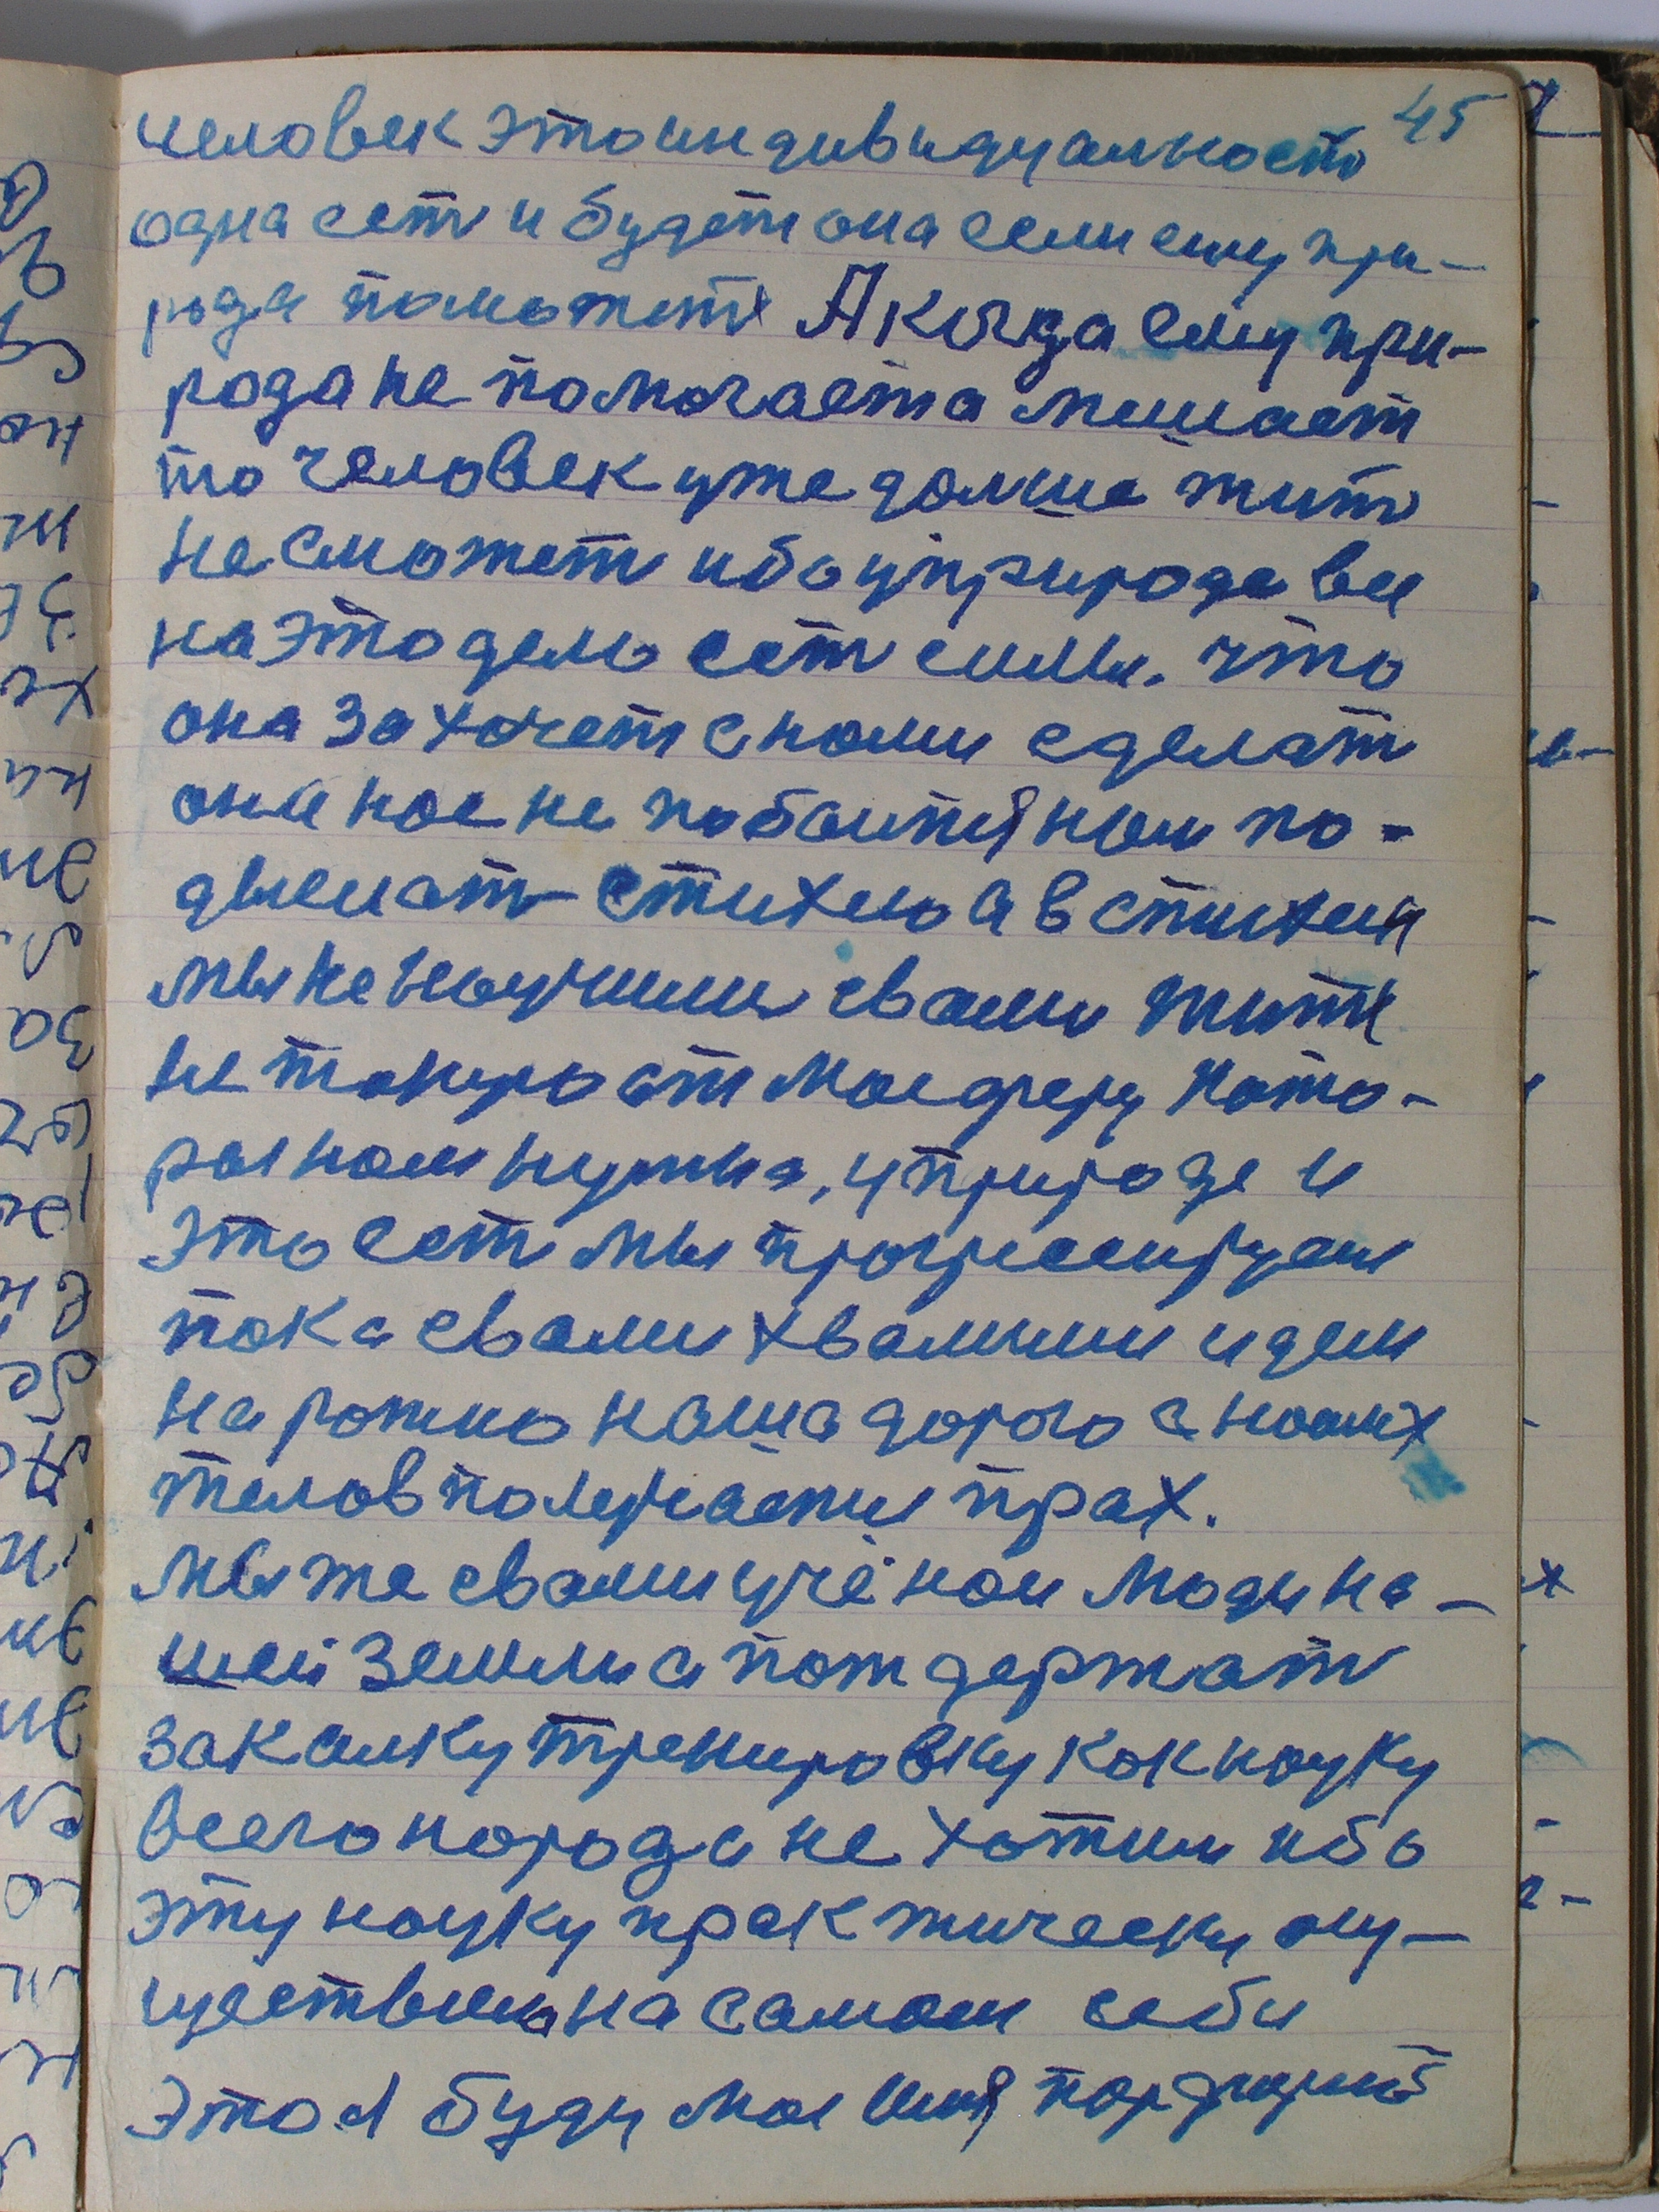 45
человек это индивидуальность
одна есть и будет она если ему при-
рода поможет А когда ему при-
рода не помогает а мешает
то человек уже дольше жить
не сможет ибо уприроде вси
на это дело есть силы. что
она захочет снами сделат
она нас не побоится нам по-
дыслать стихею а в стихеи
мы не научины свами жить
не такую
рая нам нужна, уприроде и
это есть мы прогресируем
пока свами хвалимси идем
на рожно наша дорого а наших
телов получается прах.
мы же свами учёнои люди на-
шей земли а поддержат
закалку тренировку как науку
всего народа не хотим ибо
эту науку практически осу-
ществлена на самом себи
это я буду мое имя порфирий